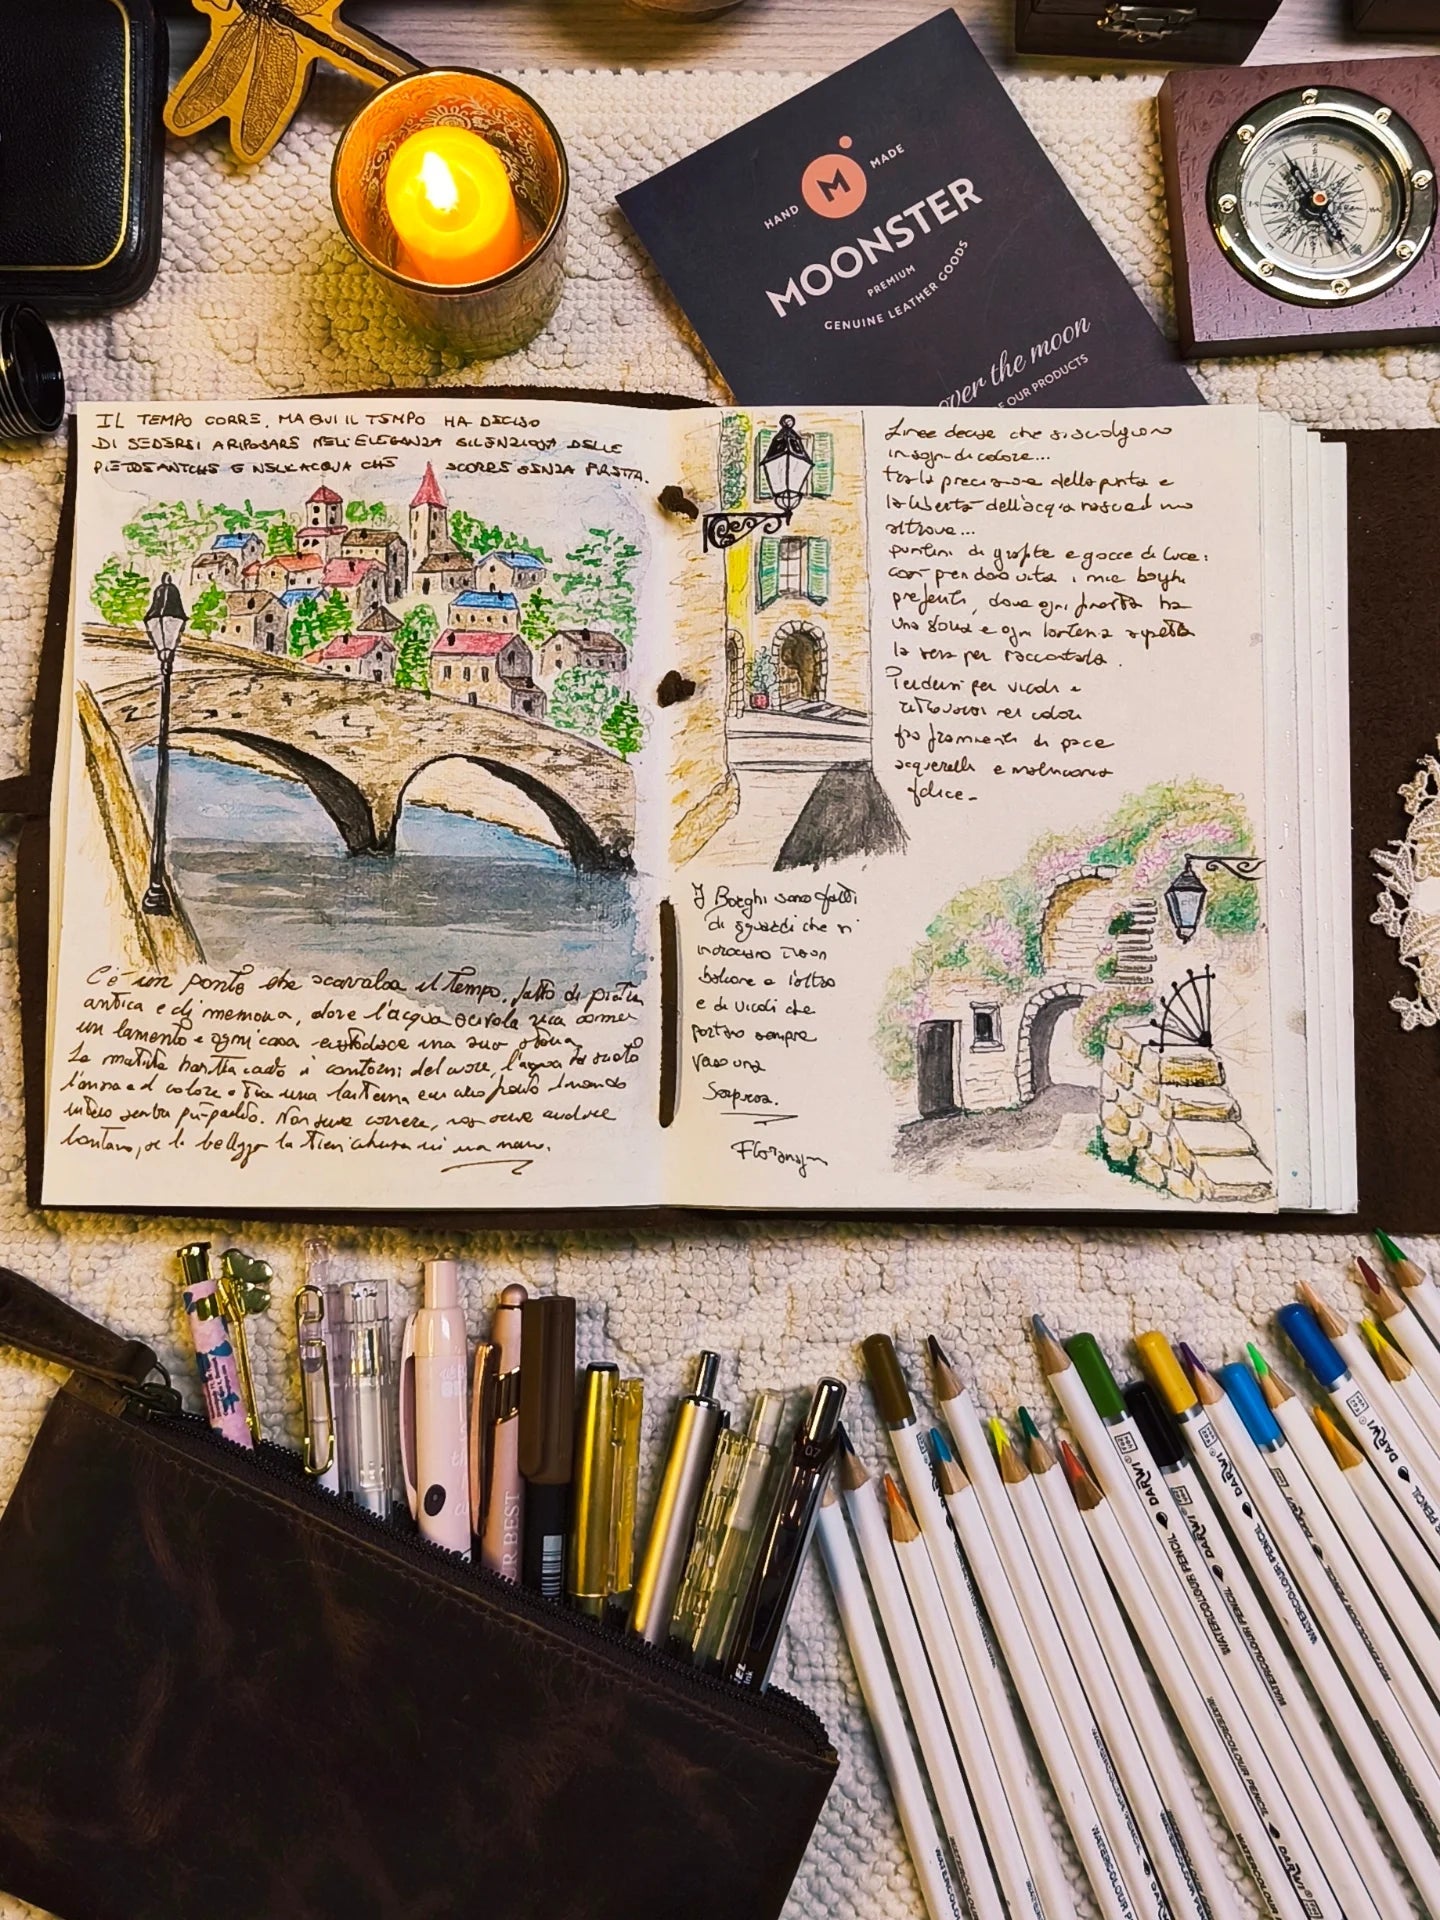 HAND MADE
M
MOONSTER
PREMIUM
GENUINE LEATHER GOODS
over the moon
OUR PRODUCTS
IL TEMPO CORRE, MA QUI IL TEMPO HA DECISO
DI SEDERSI A RIPOSARE NELL'ELEGANZA SILENZIOSA DELLE
PIETRE ANTICHE E NELL'ACQUA CHE SCORRE SENZA FRETTA.
C'è un ponte che scavalca il tempo, fatto di pietra
antica e di memoria, dove l'acqua scivola via come
un lamento e ogni casa custodisce una sua storia
Le matite hanno i contorni del cuore, l'acqua ha
l'anima e il colore e una lanterna
più Non serve correre, non serve andare
lontano, se la bellezza la tieni chiusa in una mano.
Linee decise che si sciolgono
in sogni di colore...
tra la precisione della punta e
la libertà dell'acqua nasce il mio
altrove...
puntini di grafite e gocce di luce:
così prendono vita i miei borghi
preferiti, dove ogni pietra ha
una storia e ogni lanterna aspetta
la sera per raccontarla.
Perdersi per vicoli e
ritrovarsi nei colori
fra frammenti di pace
acquerelli e malinconia
felice.
I Borghi sono fatti
di sguardi che si
incrociano tra un
balcone e l'altro
e di vicoli che
portano sempre
verso una
Sorpresa.
R BEST
07
DARWI WATERCOLOUR PENCIL
DARWI WATERCOLOUR PENCIL
DARWI WATERCOLOUR PENCIL
DARWI
WATERCOLOUR PENCIL
WATERCOLOUR PENCIL DARWI